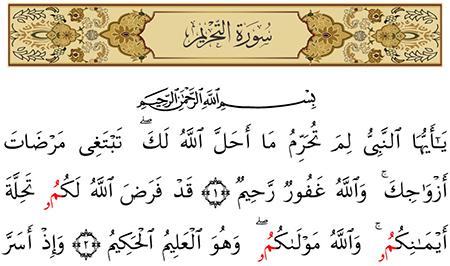 سُورَةُ التَّحْرِيمِ
بِسْمِ ٱللَّهِ ٱلرَّحْمَٰنِ ٱلرَّحِيمِ
يَـٰٓأَيُّهَا ٱلنَّبِىُّ لِمَ تُحَرِّمُ مَآ أَحَلَّ ٱللَّهُ لَكَ ۖ تَبْتَغِى مَرْضَاتَ
أَزْوَٰجِكَ ۚ وَٱللَّهُ غَفُورٌ رَّحِيمٌ ﴿١﴾ قَدْ فَرَضَ ٱللَّهُ لَكُمُۥ تَحِلَّةَ
أَيْمَـٰنِكُمُۥ ۚ وَٱللَّهُ مَوْلَىٰكُمُۥ ۖ وَهُوَ ٱلْعَلِيمُ ٱلْحَكِيمُ ﴿٢﴾ وَإِذْ أَسَرَّ